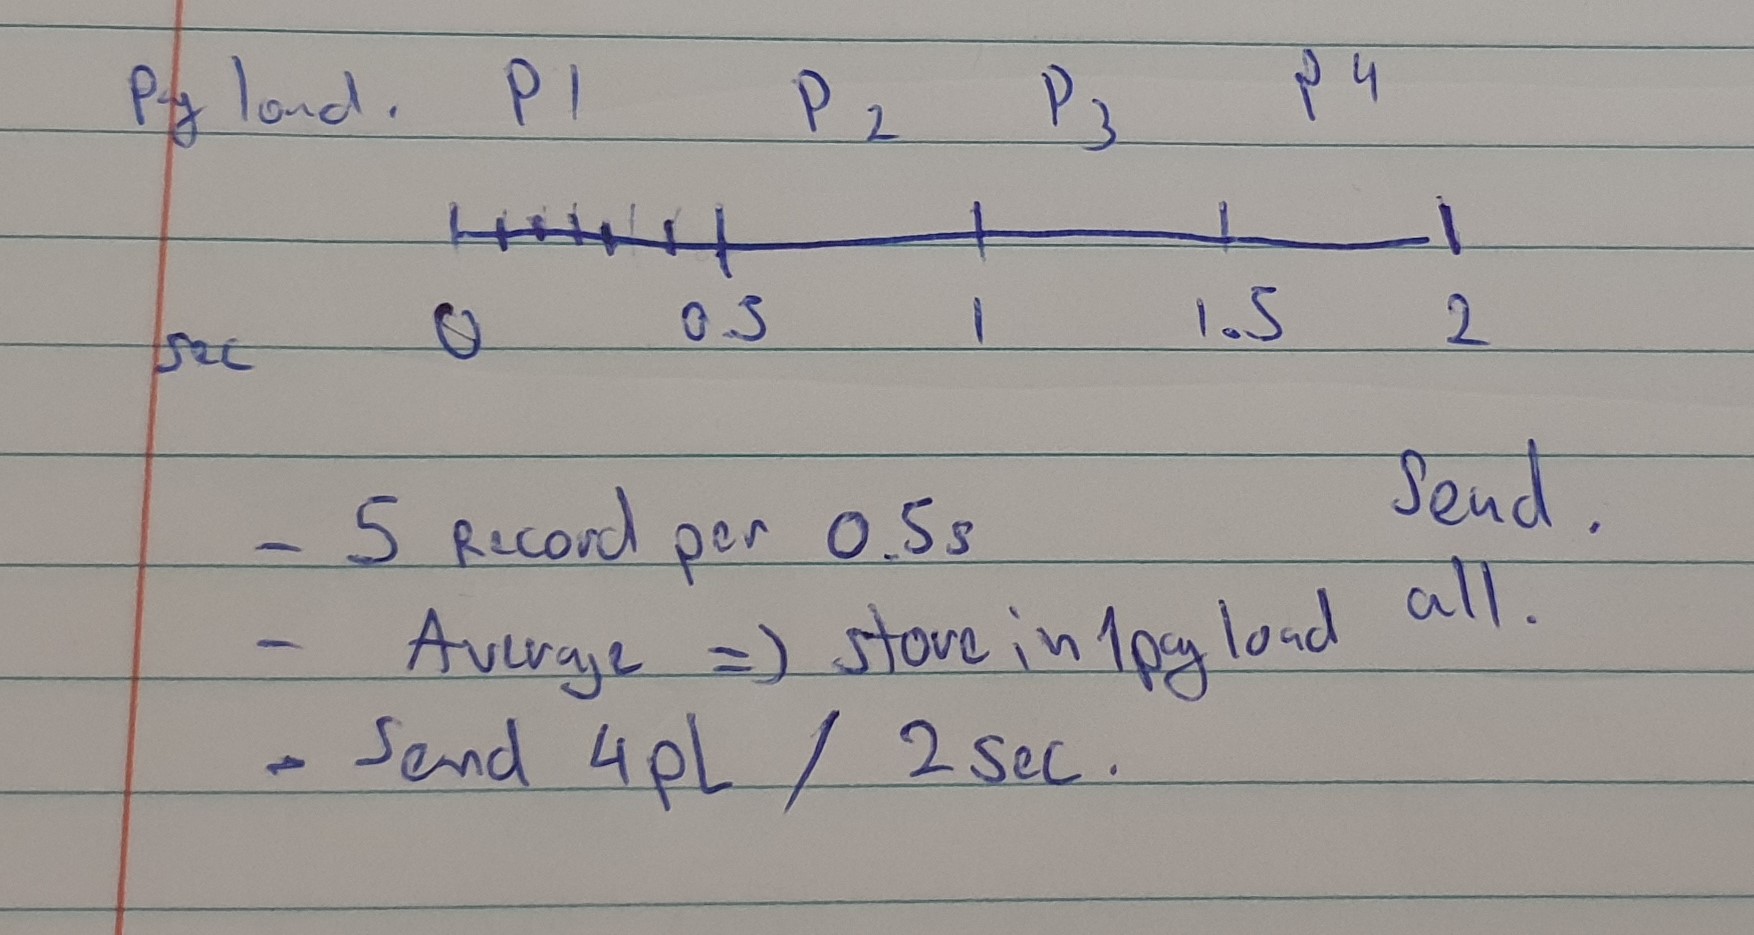 Pyload. P1 P2 P3 P4
sec 0 0.5 1 1.5 2
- 5 Record per 0.5s
Send.
- Average => store in 1 payload
all.
- Send 4pL / 2 sec.